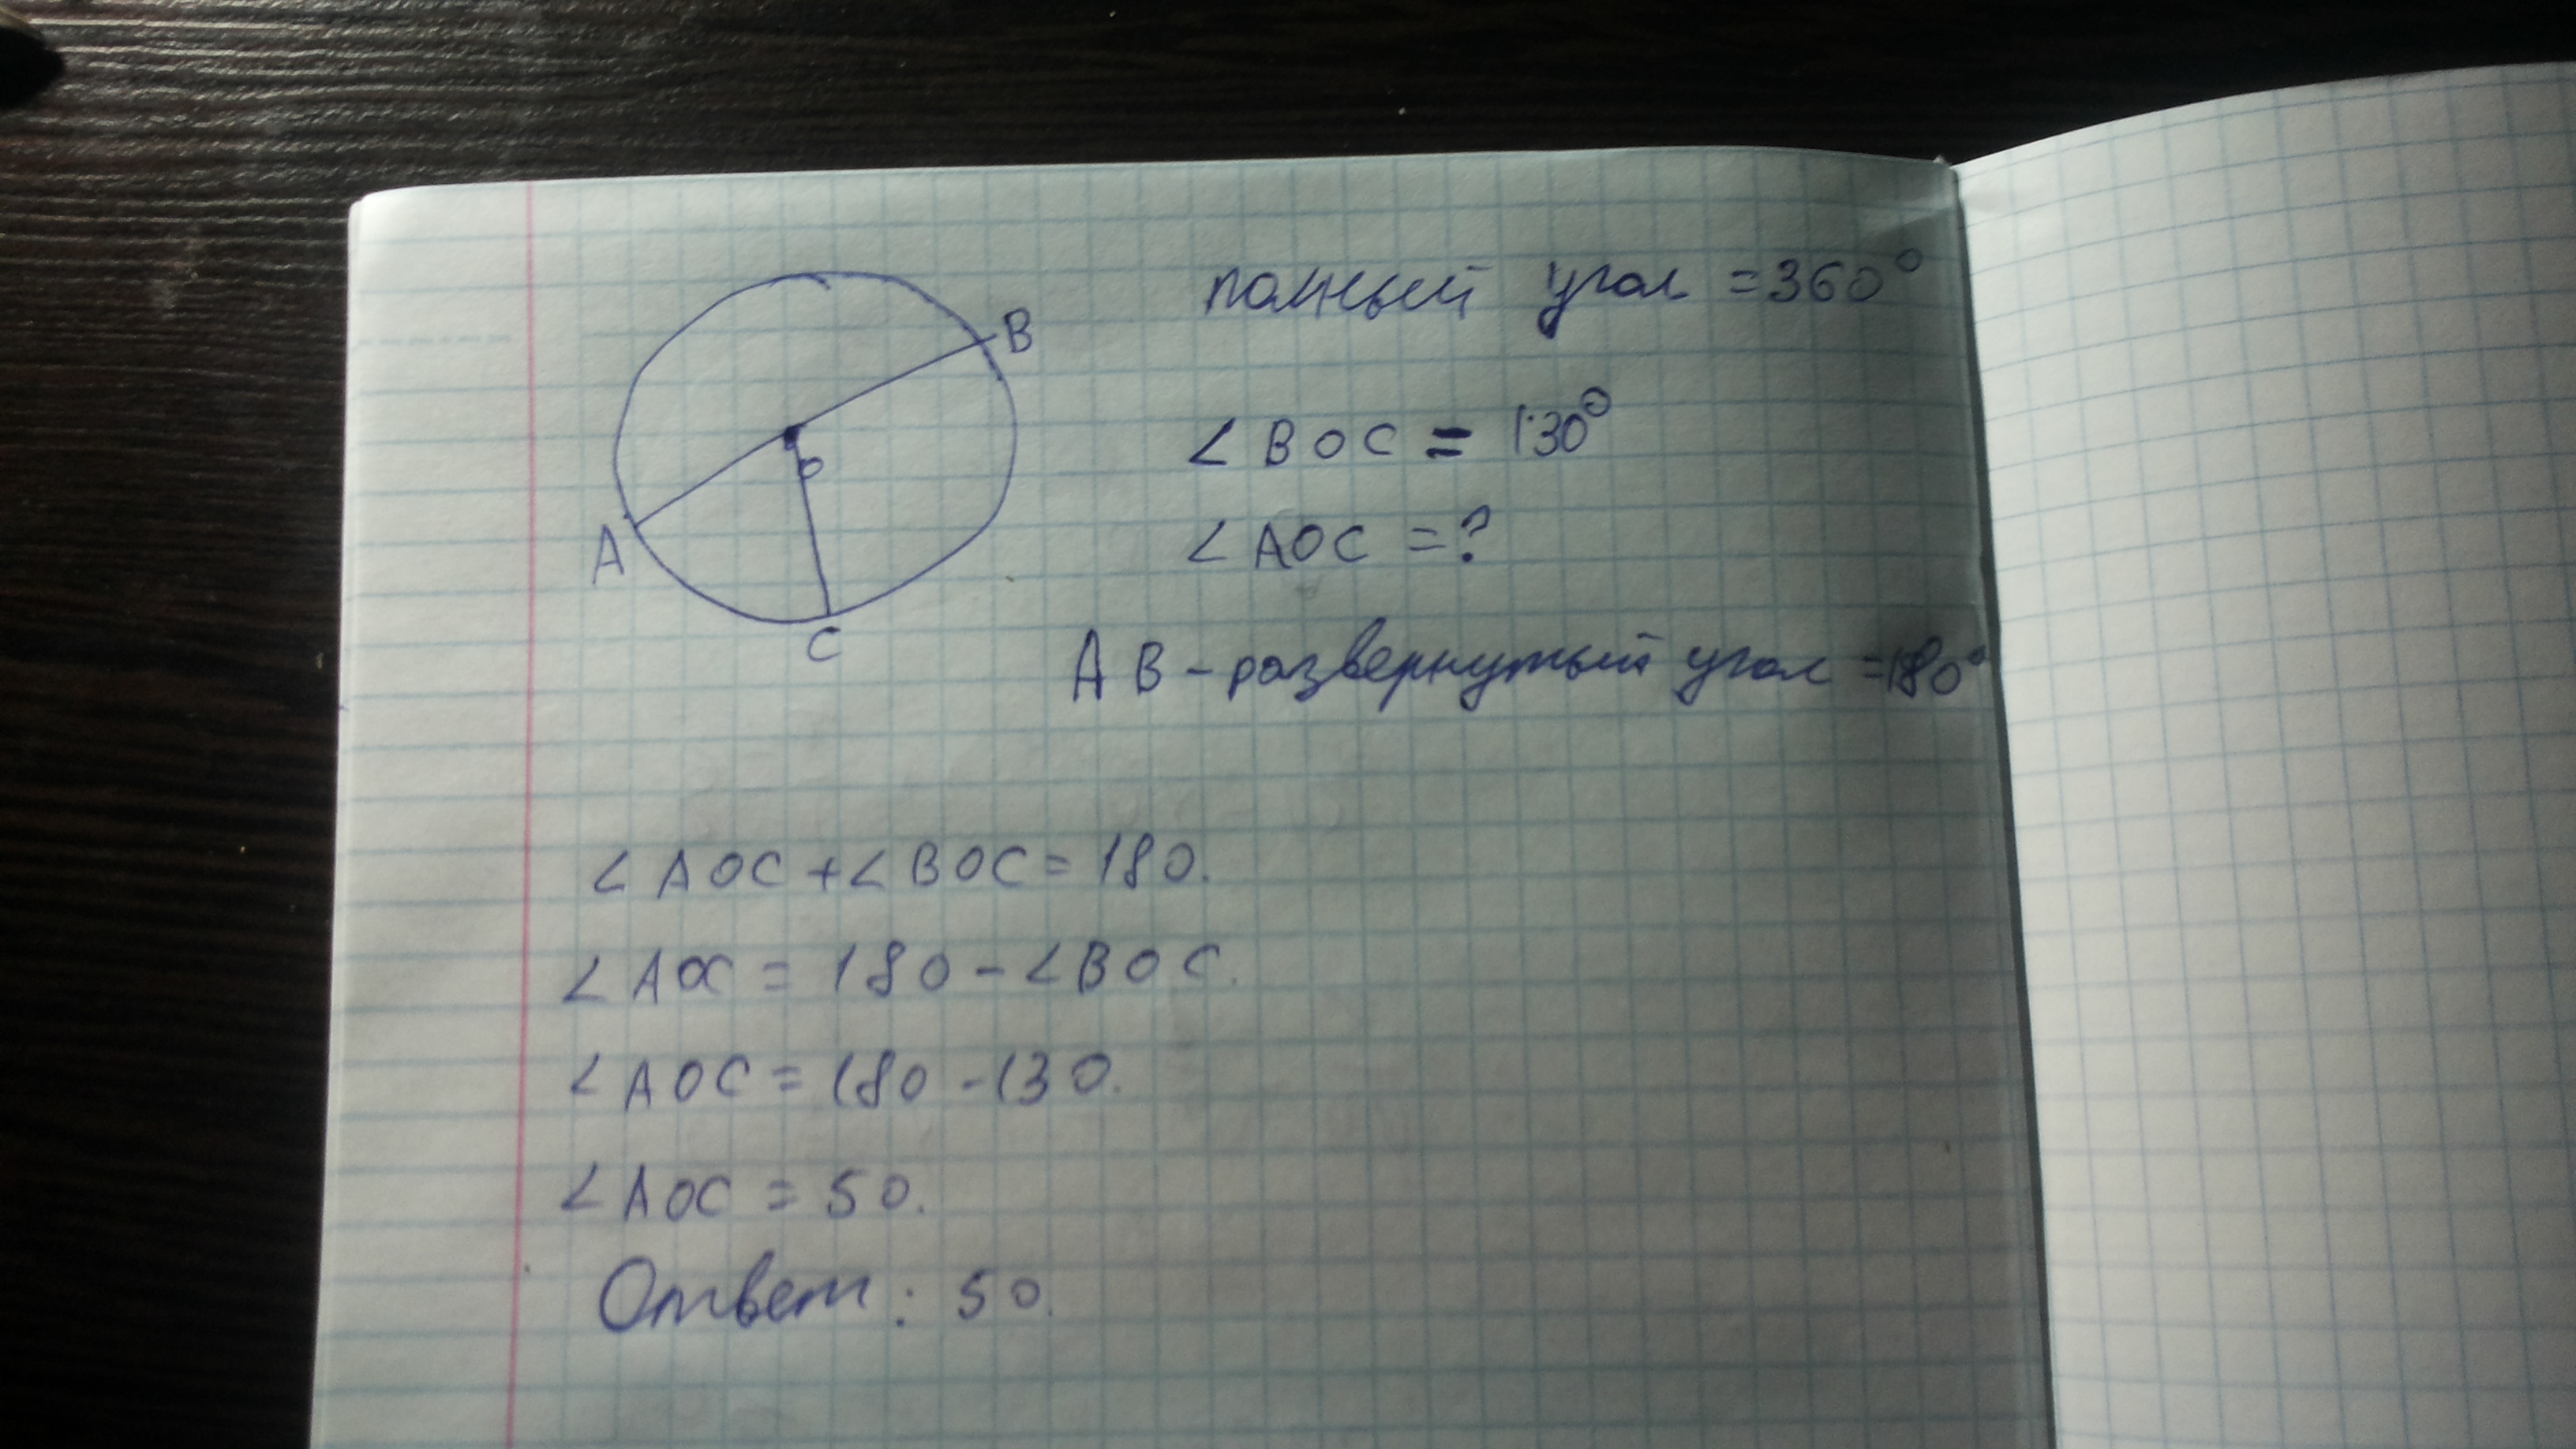 B
O
A
C
полный угол = 360°
∠ BOC = 130°
∠ AOC = ?
AB - развернутый угол = 180°
∠ AOC + ∠ BOC = 180.
∠ AOC = 180 - ∠ BOC.
∠ AOC = 180 - 130.
∠ AOC = 50.
Ответ: 50.